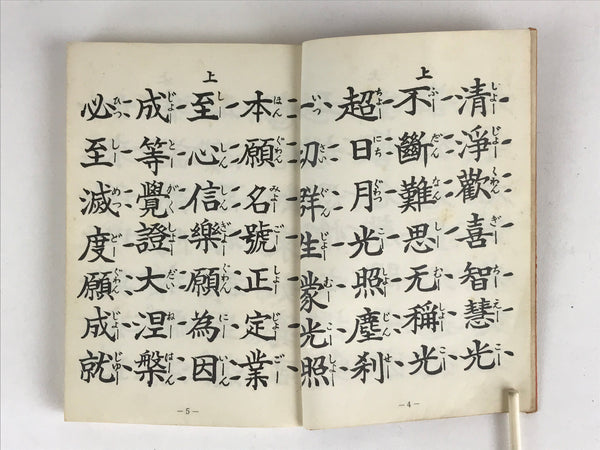 上
清淨歡喜智慧光
不斷難思无稱光
超日月光照塵刹
一切群生蒙光照
—4—
上
本願名號正定業
至心信樂願為因
成等覺證大涅槃
必至滅度願成就
—5—